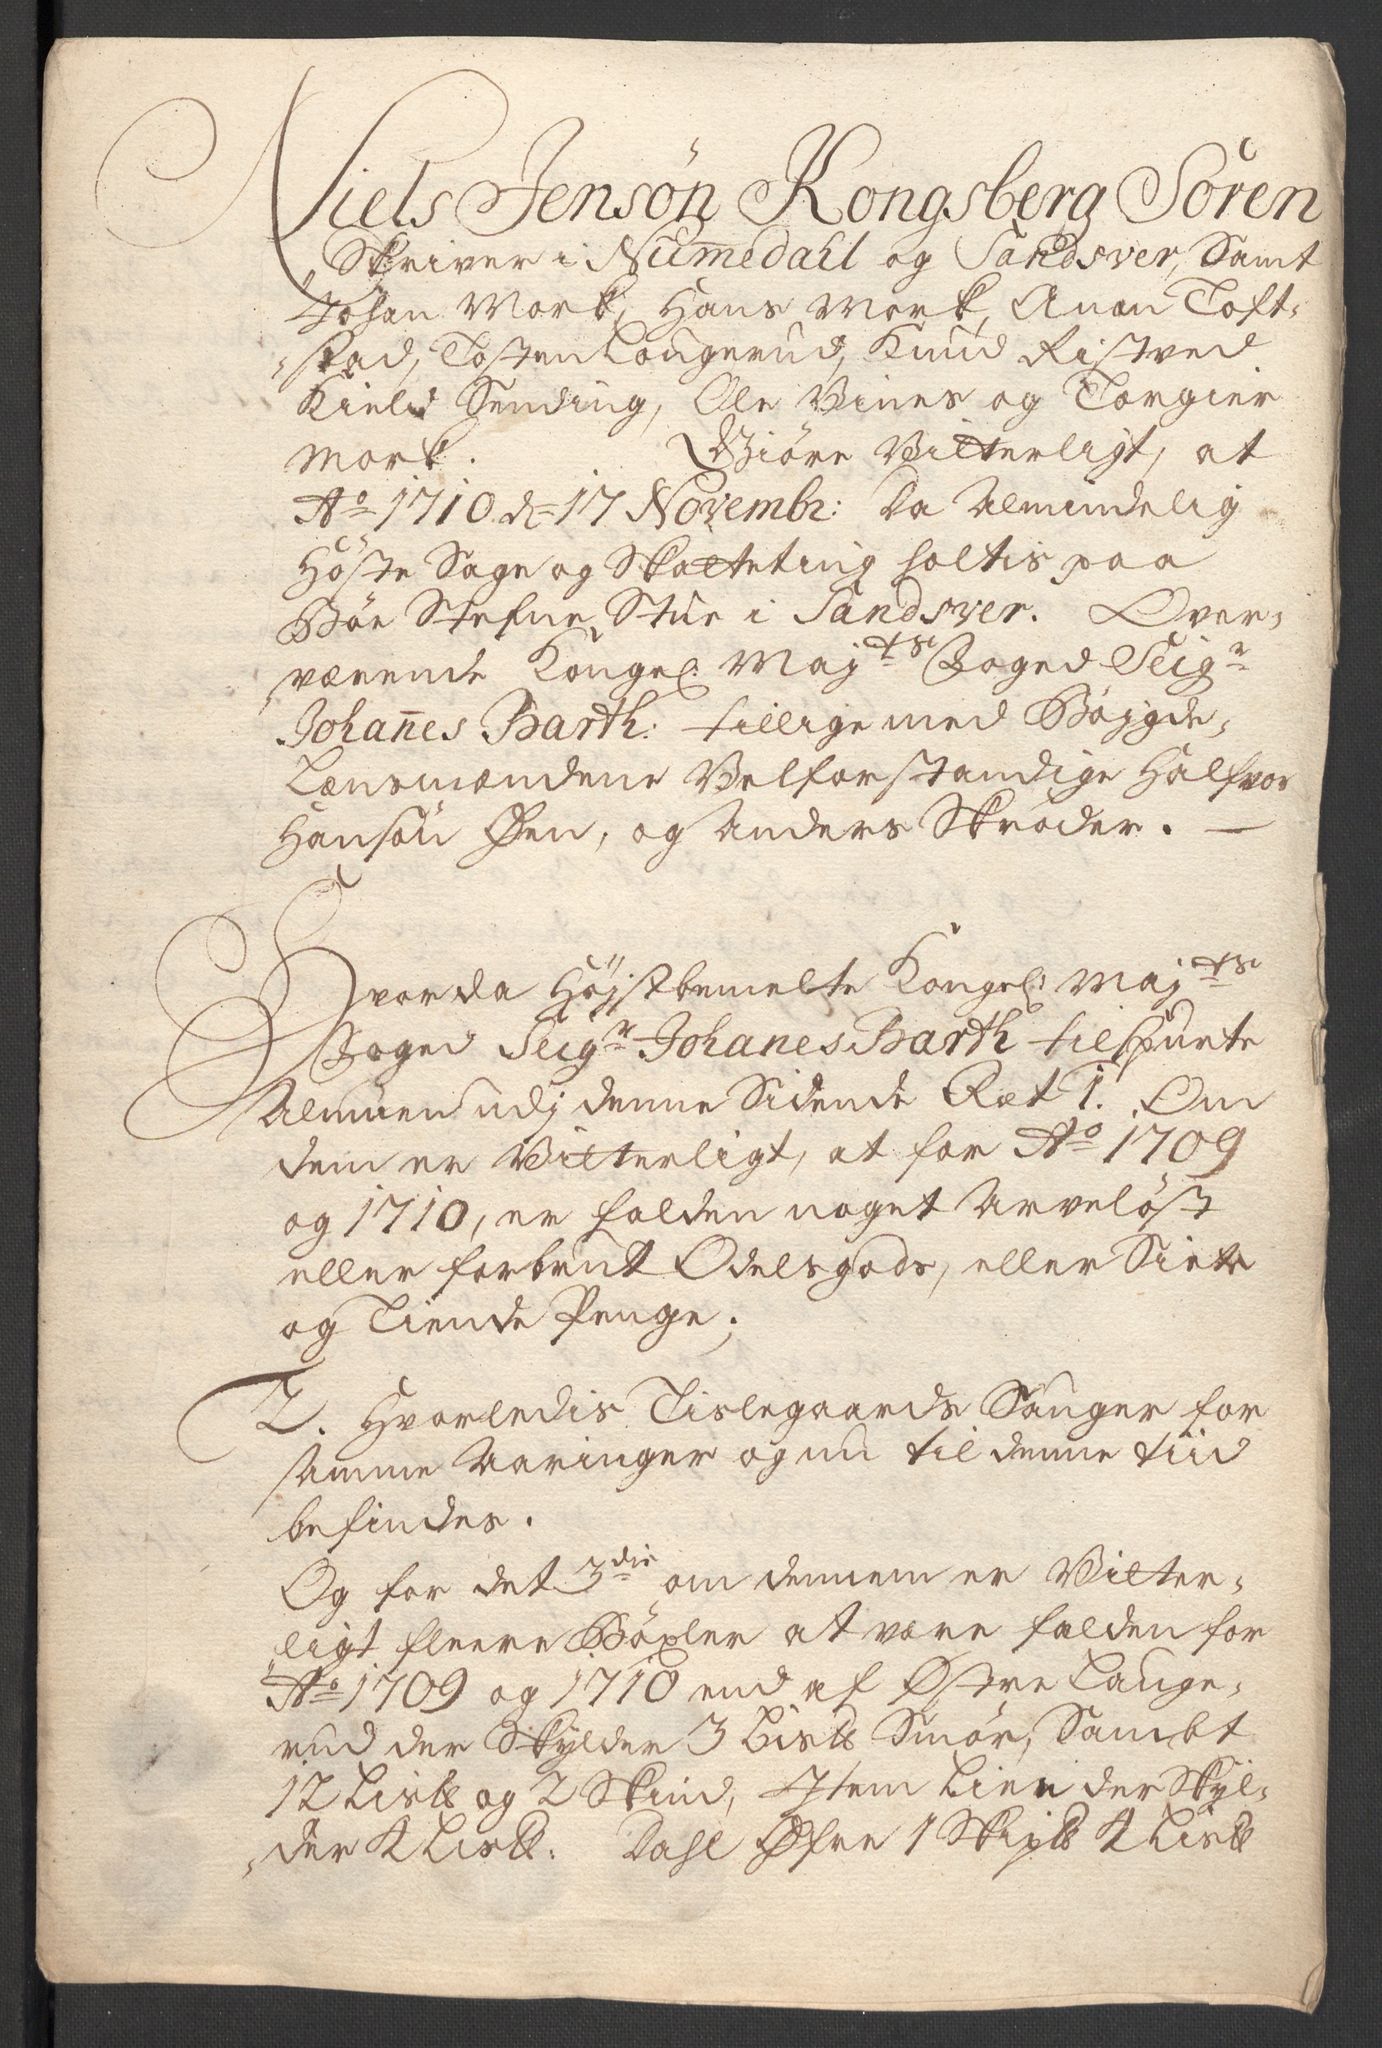 Niels Jensøn Kongsberg Soren
Skriver i Numedahl og Sandsver, Samt
Johan Mork, Hans Mork, Anon Toft-
stad, Tosten Laugerud, Knud Ristved
Kield Sending, Ole Vines og Torgier
Mork. Giøre Vitterligt, at
Ao 1710 d= 17 Novembr: Da Almindelig
Høste Sage og Skatteting holtis paa
Bøe Stefne Stue i Sandsver. Over-
værende Kongel: Maj:ts Foged Seigr
Johannes Barth: tillige med Bøygde-
Lænsmændene Velforstandige Halfvor
Hansøn Øen, og Anders Skrøder. —
Hvor da Højstbemelte Kongel: Maj:ts
Foged Seigr Johanes Barth tilspurte
Almuen udj denne Sidende Ræt 1. Om
dem er Vitterligt, at for Ao 1709
og 1710, er falden noget Arveløst
eller forbrut Odelsgods, eller Siette
og Tiende Penge;
2. Hvorledis Tislegaards Sauger for
samme Aaringer og nu til denne tiid
befindes.
Og for det 3die om dennem er Vitter-
ligt fleere Bøxler at være falden for
Ao 1709 og 1710 end af Østre Lauge-
rud der Skylder 3 Lisb Smør, Sambt
12 Lisb og 2 Skind, Item Lien der Skyl-
der 4 Lisb. Dahl Øfre 1 Skipb 4 Lisb